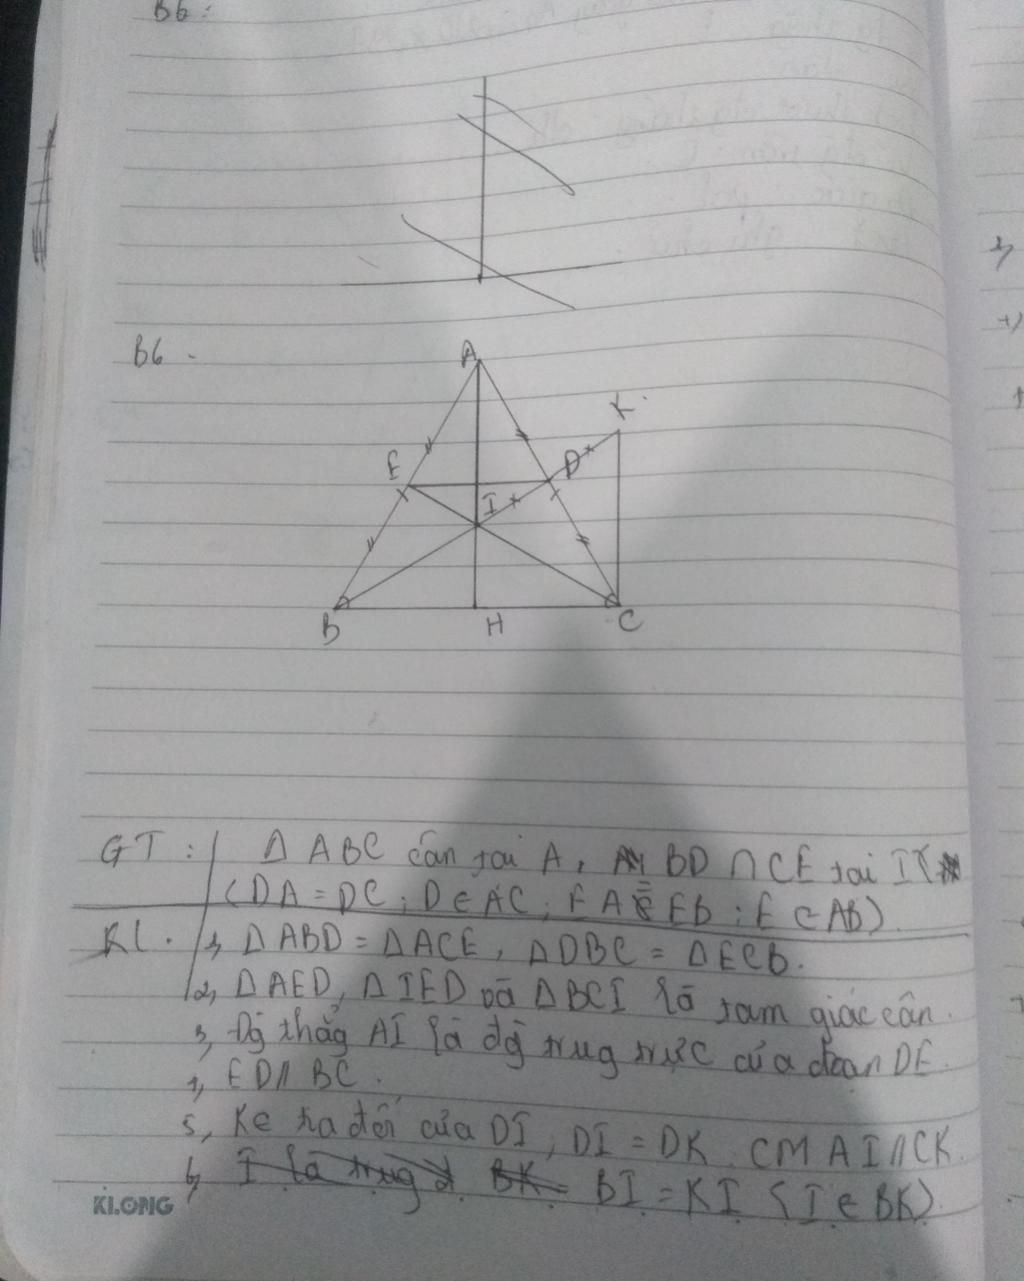 B6:
B6
A
K
E
D
I
B
H
C
GT: Δ ABC cân tại A, BD ∩ CE tại I
(DA = DC; D ∈ AC; EA = EB; E ∈ AB)
KL. 1, Δ ABD = Δ ACE, Δ DBC = Δ ECB.
2, Δ AED, Δ IED và Δ BCI là tam giác cân.
3, Đg thẳg AI là đg trug trực của đoạn DE.
ED // BC.
5, Kẻ tia đối của DI, DI = DK. CM AI // CK.
6, I là trug đ BK= BI = KI (I ∈ BK).
KLONG